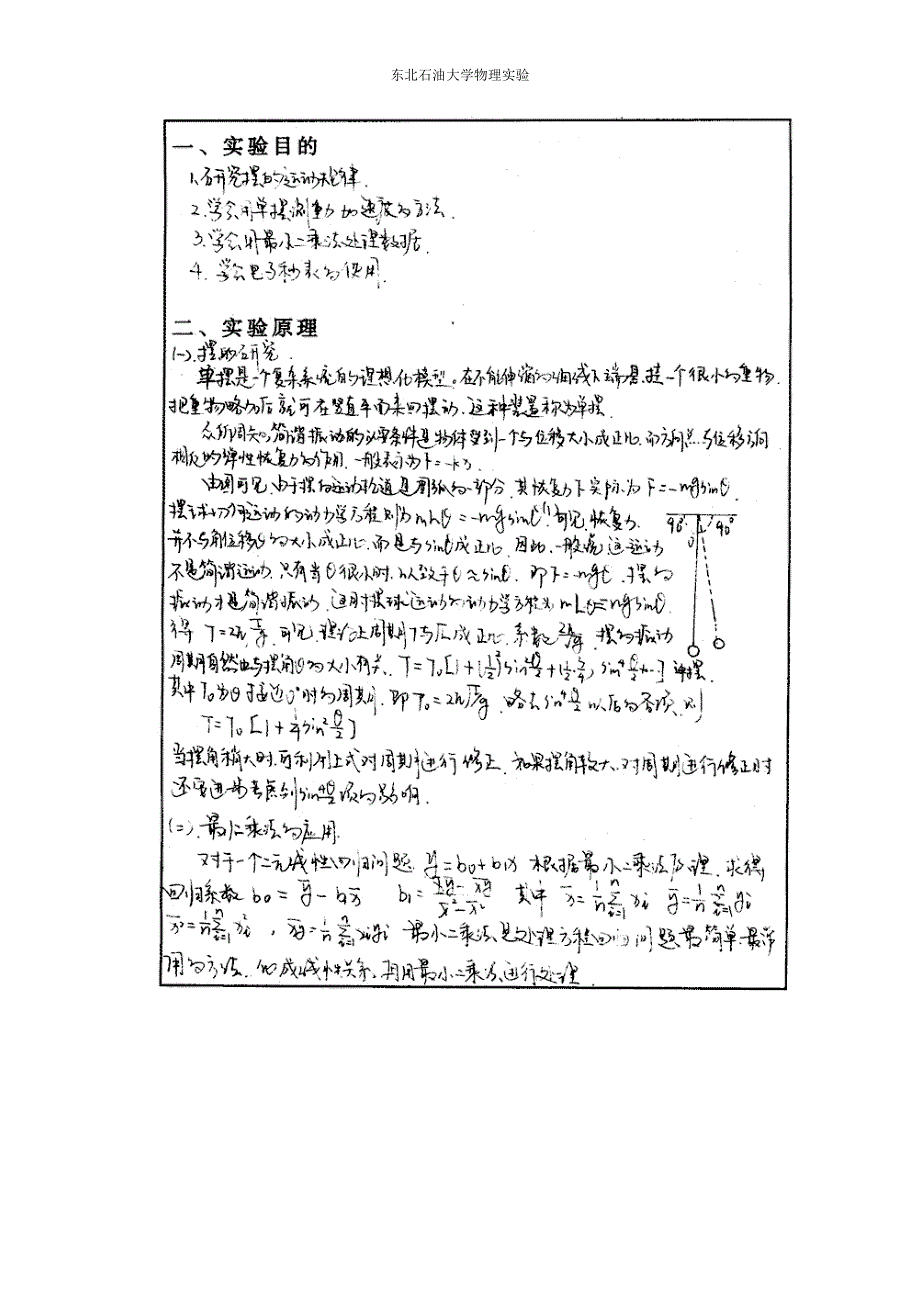 东北石油大学物理实验
一、实验目的
1.研究摆的运动规律.
2.学会用单摆测重力加速度的方法.
3.学会用最小二乘法处理数据.
4.学会电子秒表的使用.
二、实验原理
(一).摆的研究.
单摆是一个复杂系统的理想化模型。在不能伸缩的细线下端悬挂一个很小的重物,
把重物略 后就可在竖直平面来回摆动,这种装置称为单摆.
众所周知,简谐振动的必要条件是物体受到一个与位移大小成正比,而方向 与位移方向
相反的弹性恢复力的作用,一般表示为F=-kx.
由图可见,由于摆的运动轨道是圆弧的一部分,其恢复力F实际为F=-mgsinθ.
摆球切向运动的动力学方程则为mLθ̈=-mgsinθ(1)可见,恢复力
90° θ 90°
并不与角位移θ的大小成正比,而是与sinθ成正比,因此,一般 这运动
不是简谐运动.只有当θ很小时,以致于θ≈sinθ.即F=-mgθ.摆的
振动才是简谐振动,这时摆球运动的动力学方程为mLθ̈=-mgsinθ.
得 可见,理论上周期T与 成正比,系数 摆的振动
周期自然也与摆角θ的大小有关. 单摆
其中T₀为θ接近0°时的周期,即 略去sin⁴θ/2以后的各项,则
T=T₀[1+1/4sin²θ/2]
当摆角稍大时,可利用上式对周期进行修正.如果摆角较大,对周期进行修正时
还要进一步考虑到sin⁴θ/2项的影响.
(二).最小二乘法的应用.
对于一个二元线性回归问题 y=b₀+b₁x 根据最小二乘法原理,求得
回归系数 b₀=ȳ-b₁x̄ b₁= 其中 x̄=1/n Σ(i=1,n) xᵢ ȳ=1/n Σ(i=1,n) yᵢ
=1/n Σ(i=1,n) xᵢ² , =1/n Σ(i=1,n) xᵢyᵢ 最小二乘法是处理方程回归问题最简单最常
用的方法. 成线性关系,再用最小二乘法进行处理.